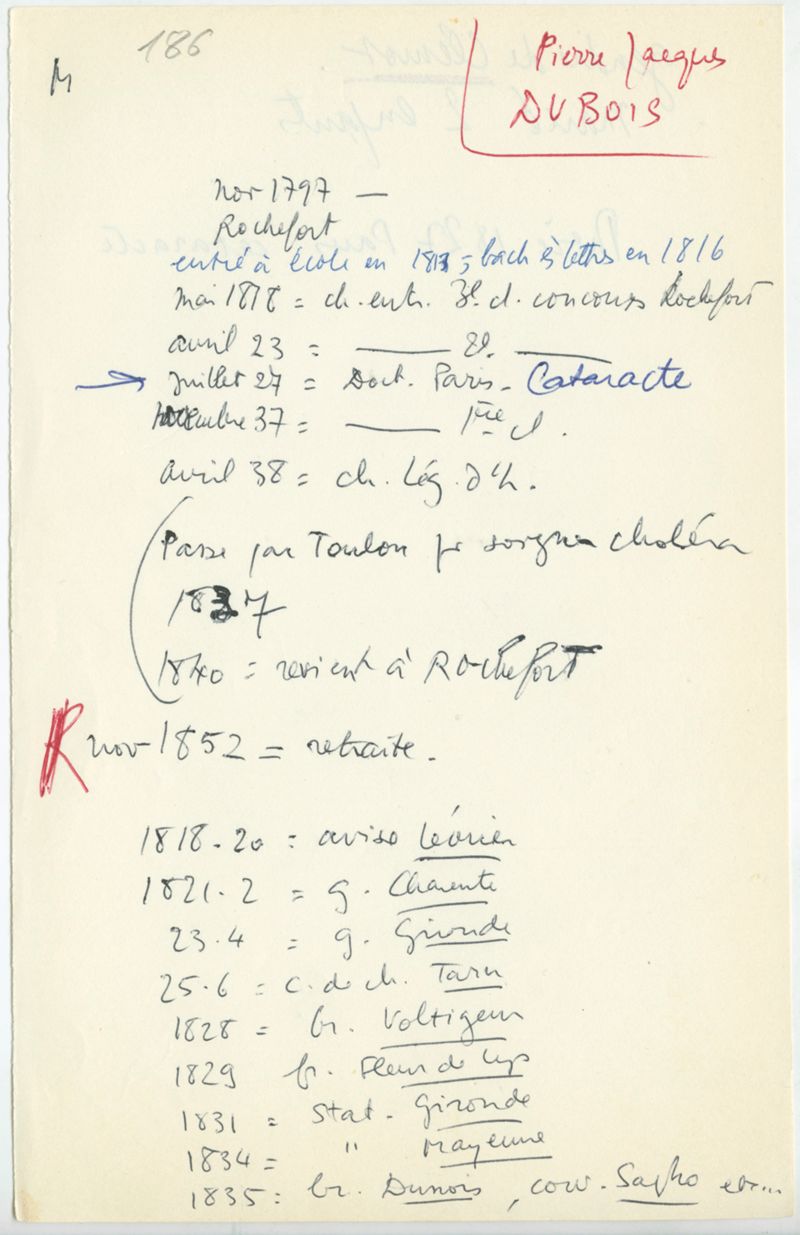 186
M
Pierre Jacques
DUBOIS
nov 1797 —
Rochefort
entré à école en 1813 ; bach ès lettres en 1816
mai 1818 = ch. entr. 3e cl. concours Rochefort
avril 23 = —— 2e. ——
→ juillet 27 = Doct. Paris - Cataracte
novembre 37 = —— 1ère cl.
avril 38 = ch. Lég. d'h.
(Passe par Toulon pr soigner choléra
1837
1840 = revient à Rochefort
R nov 1852 = retraite.
1818.20 = aviso Lévrier
1821.2 = g. Charente
23.4 = g. Gironde
25.6 = c. de ch. Tarn
1828 = br. Voltigeur
1829 fr. Fleur de Lys
1831 = Stat. Gironde
1834 = " Mayenne
1835 = br. Dunois, corv. Sapho etc...